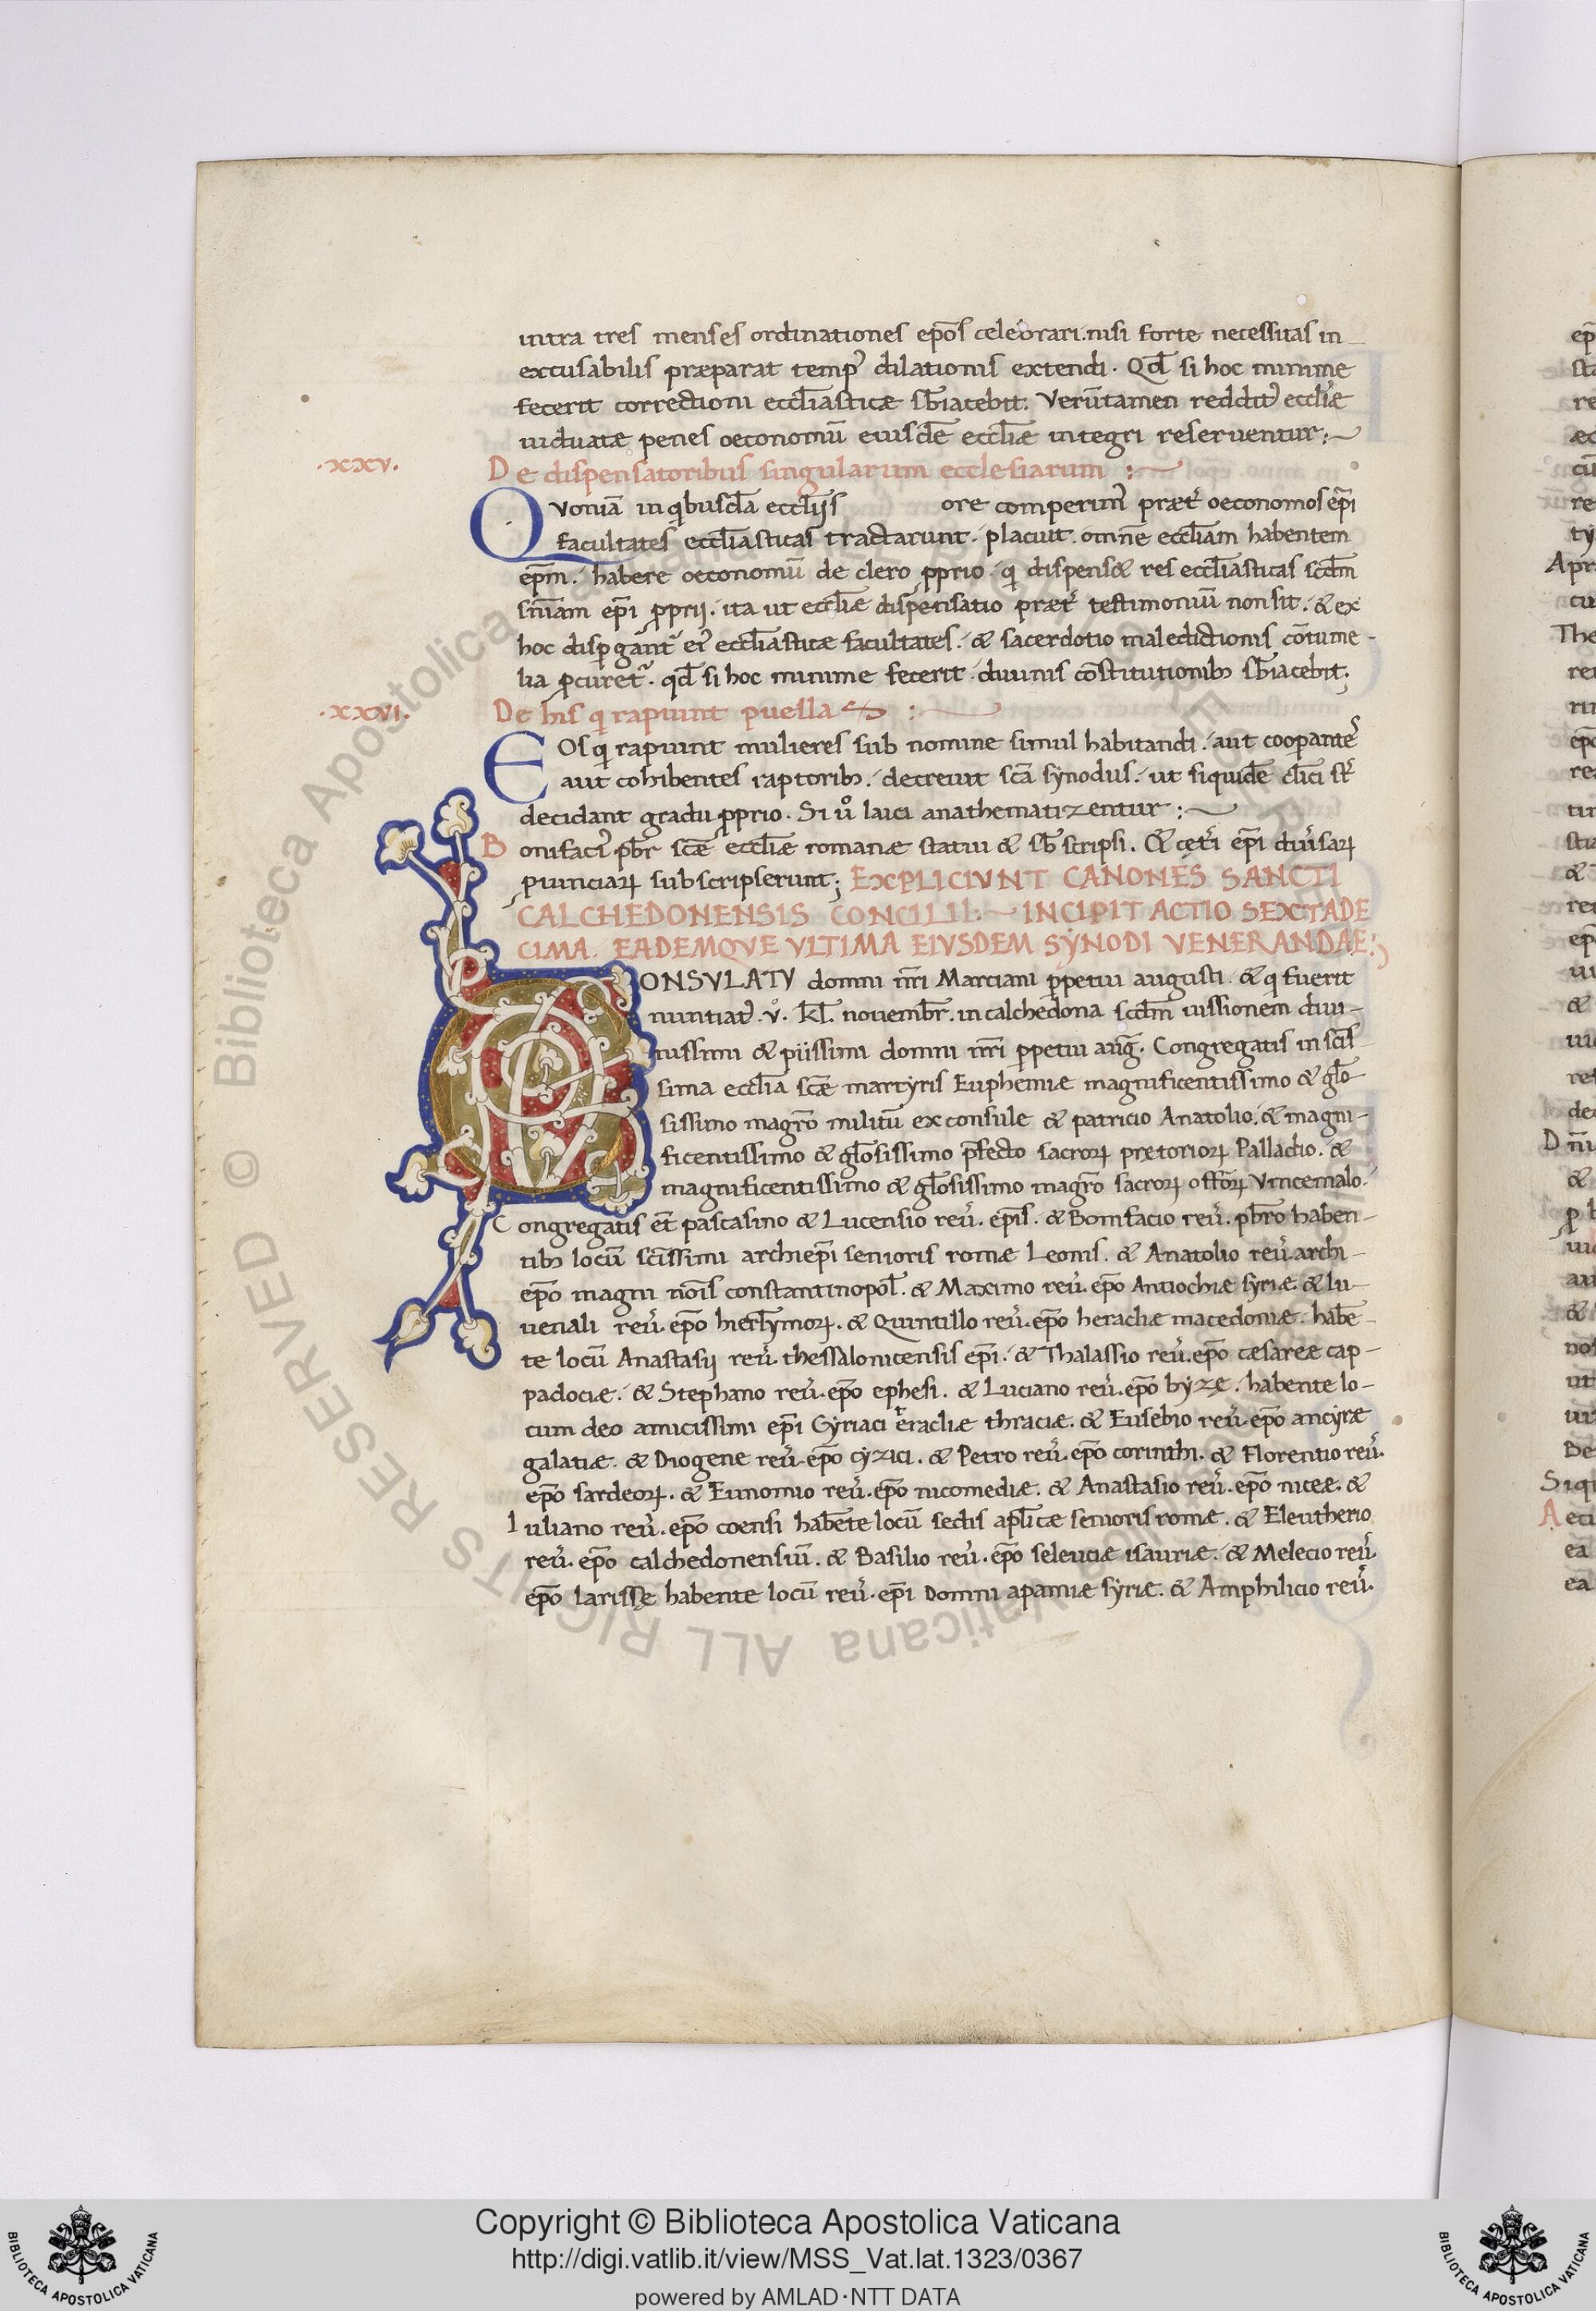 intra tres menses ordinationes ep̄os celebrari. nisi forte necessitas in
excusabilis præparat temp᾽ dilationis extendi. Qd̄ si hoc minime
fecerit correctioni eccl̄iasticæ sb̄iacebit. Verūtamen reddit᾽ eccl̄iæ
uiduatæ penes oeconomū eiusdē eccl̄iæ integri reseruentur:~
·XXV·
De dispensatoribus singularum ecclesiarum :~
Quoniā in qibusdā eccl̄ijs ore comperim᾽ præt᾽ oeconomos ep̄i
facultates eccl̄iasticas tractarunt. placuit. omnē eccl̄iam habentem
ep̄m. habere oeconomū de clero pprio. qi dispens& res eccl̄iasticas scd̄m
sn̄iam ep̄i pprij. ita ut eccl̄iæ dispensatio præt᾽ testimoniū non sit. & ex
hoc dispgānt᾽ ei᾽ eccl̄iasticæ facultates. & sacerdotio maledictionis cōtume-
lia pcuret᾽. qd̄ si hoc minime fecerit. diuinis cōstitutionib; sb̄iacebit;
·XXVI·
De his qi rapiunt puellas :~
Eos qi rapiunt mulieres sub nomine simul habitandi. aut coopante᾽
aut cohibentes raptorib;. decreuit sc̄a synodus. ut siquidē cl̄ici st᾽
decidant gradu pprio. Si u̾ laici anathematizentur:~
Bonifaci᾽ pb̄r sc̄æ eccl̄iæ romanæ statui & sb̄scripsi. & cęt᾽i ep̄i diu᾽saꝝ
puinciaꝝ subscripserunt; EXPLICIVNT CANONES SANCTI
CALCHEDONENSIS CONCILII:~ INCIPIT ACTIO SEXTADE
CIMA. EADEMQVE VLTIMA EIVSDEM SYNODI VENERANDAE:
CONSVLATV domni nr̄i Marciani ppetui augusti. & qi fuerit
nuntiat᾽. v̊. kl̄. nouembr̄. in calchedona scd̄m iussionem diui-
nissimi & piissimi domni nr̄i ppetui aug̅. Congregatis in scīs-
sima eccl̄ia sc̄æ martyris Euphemiæ magnificentissimo & gl̄o
sissimo magr̄o militū ex consule & patricio Anatolio. & magni-
ficentissimo & gl̄osissimo p̄fecto sacroꝝ pretorioꝝ Palladio. &
magnificentissimo & gl̄osissimo magr̄o sacroꝝ off̄oꝝ Vincemalo.
Congregatis et̄ pascasino & Lucensio reu᾽. ep̄is. & Bonifacio reu᾽. pb̄ro haben-
tib; locū scīssimi archiep̄i senioris romæ Leonis. & Anatolio reu᾽. archi-
ep̄o magni nōis constantinopol̄. & Maximo reu᾽. ep̄o Antiochiæ syriæ. & Iu-
uenali reu᾽. ep̄o hierl̄ymoꝝ. & Quintillo reu᾽. ep̄o heracliæ macedoniæ. habē-
te locū Anastasij reu᾽. thessalonicensis ep̄i. & Thalassio reu᾽. ep̄o cæsareæ cap-
padociæ. & Stephano reu᾽. ep̄o ephesi. & Luciano reu᾽. ep̄o byzę. habente lo-
cum deo amicissimi ep̄i Cyriaci eracliæ thraciæ. & Eusebio reu᾽. ep̄o ancyræ
galatiæ. & Diogene reu᾽. ep̄o cyzici. & Petro reu᾽. ep̄o corinthi. & Florentio reu᾽.
ep̄o sardeoꝝ. & Eunomio reu᾽. ep̄o nicomediæ. & Anastasio reu᾽. ep̄o niceæ. &
Iuliano reu᾽. ep̄o coensi habēte locū sedis apl̄icæ senioris romæ. & Eleutherio
reu᾽. ep̄o calchedonensiū. & Basilio reu᾽. ep̄o seleuciæ isauriæ. & Melecio reu᾽.
ep̄o larissę habente locū reu᾽. ep̄i Domni apamiæ syriæ. & Amphilicio reu᾽.
© Biblioteca Apostolica Vaticana ALL RIGHTS RESERVED
Copyright © Biblioteca Apostolica Vaticana
http://digi.vatlib.it/view/MSS_Vat.lat.1323/0367
powered by AMLAD·NTT DATA
BIBLIOTECA APOSTOLICA VATICANA
BIBLIOTECA APOSTOLICA VATICANA